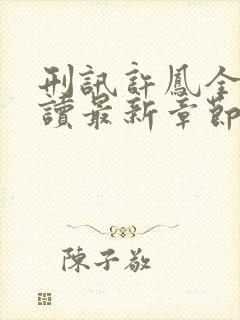 刑訊許鳳全
讀最新章節
陳子敬